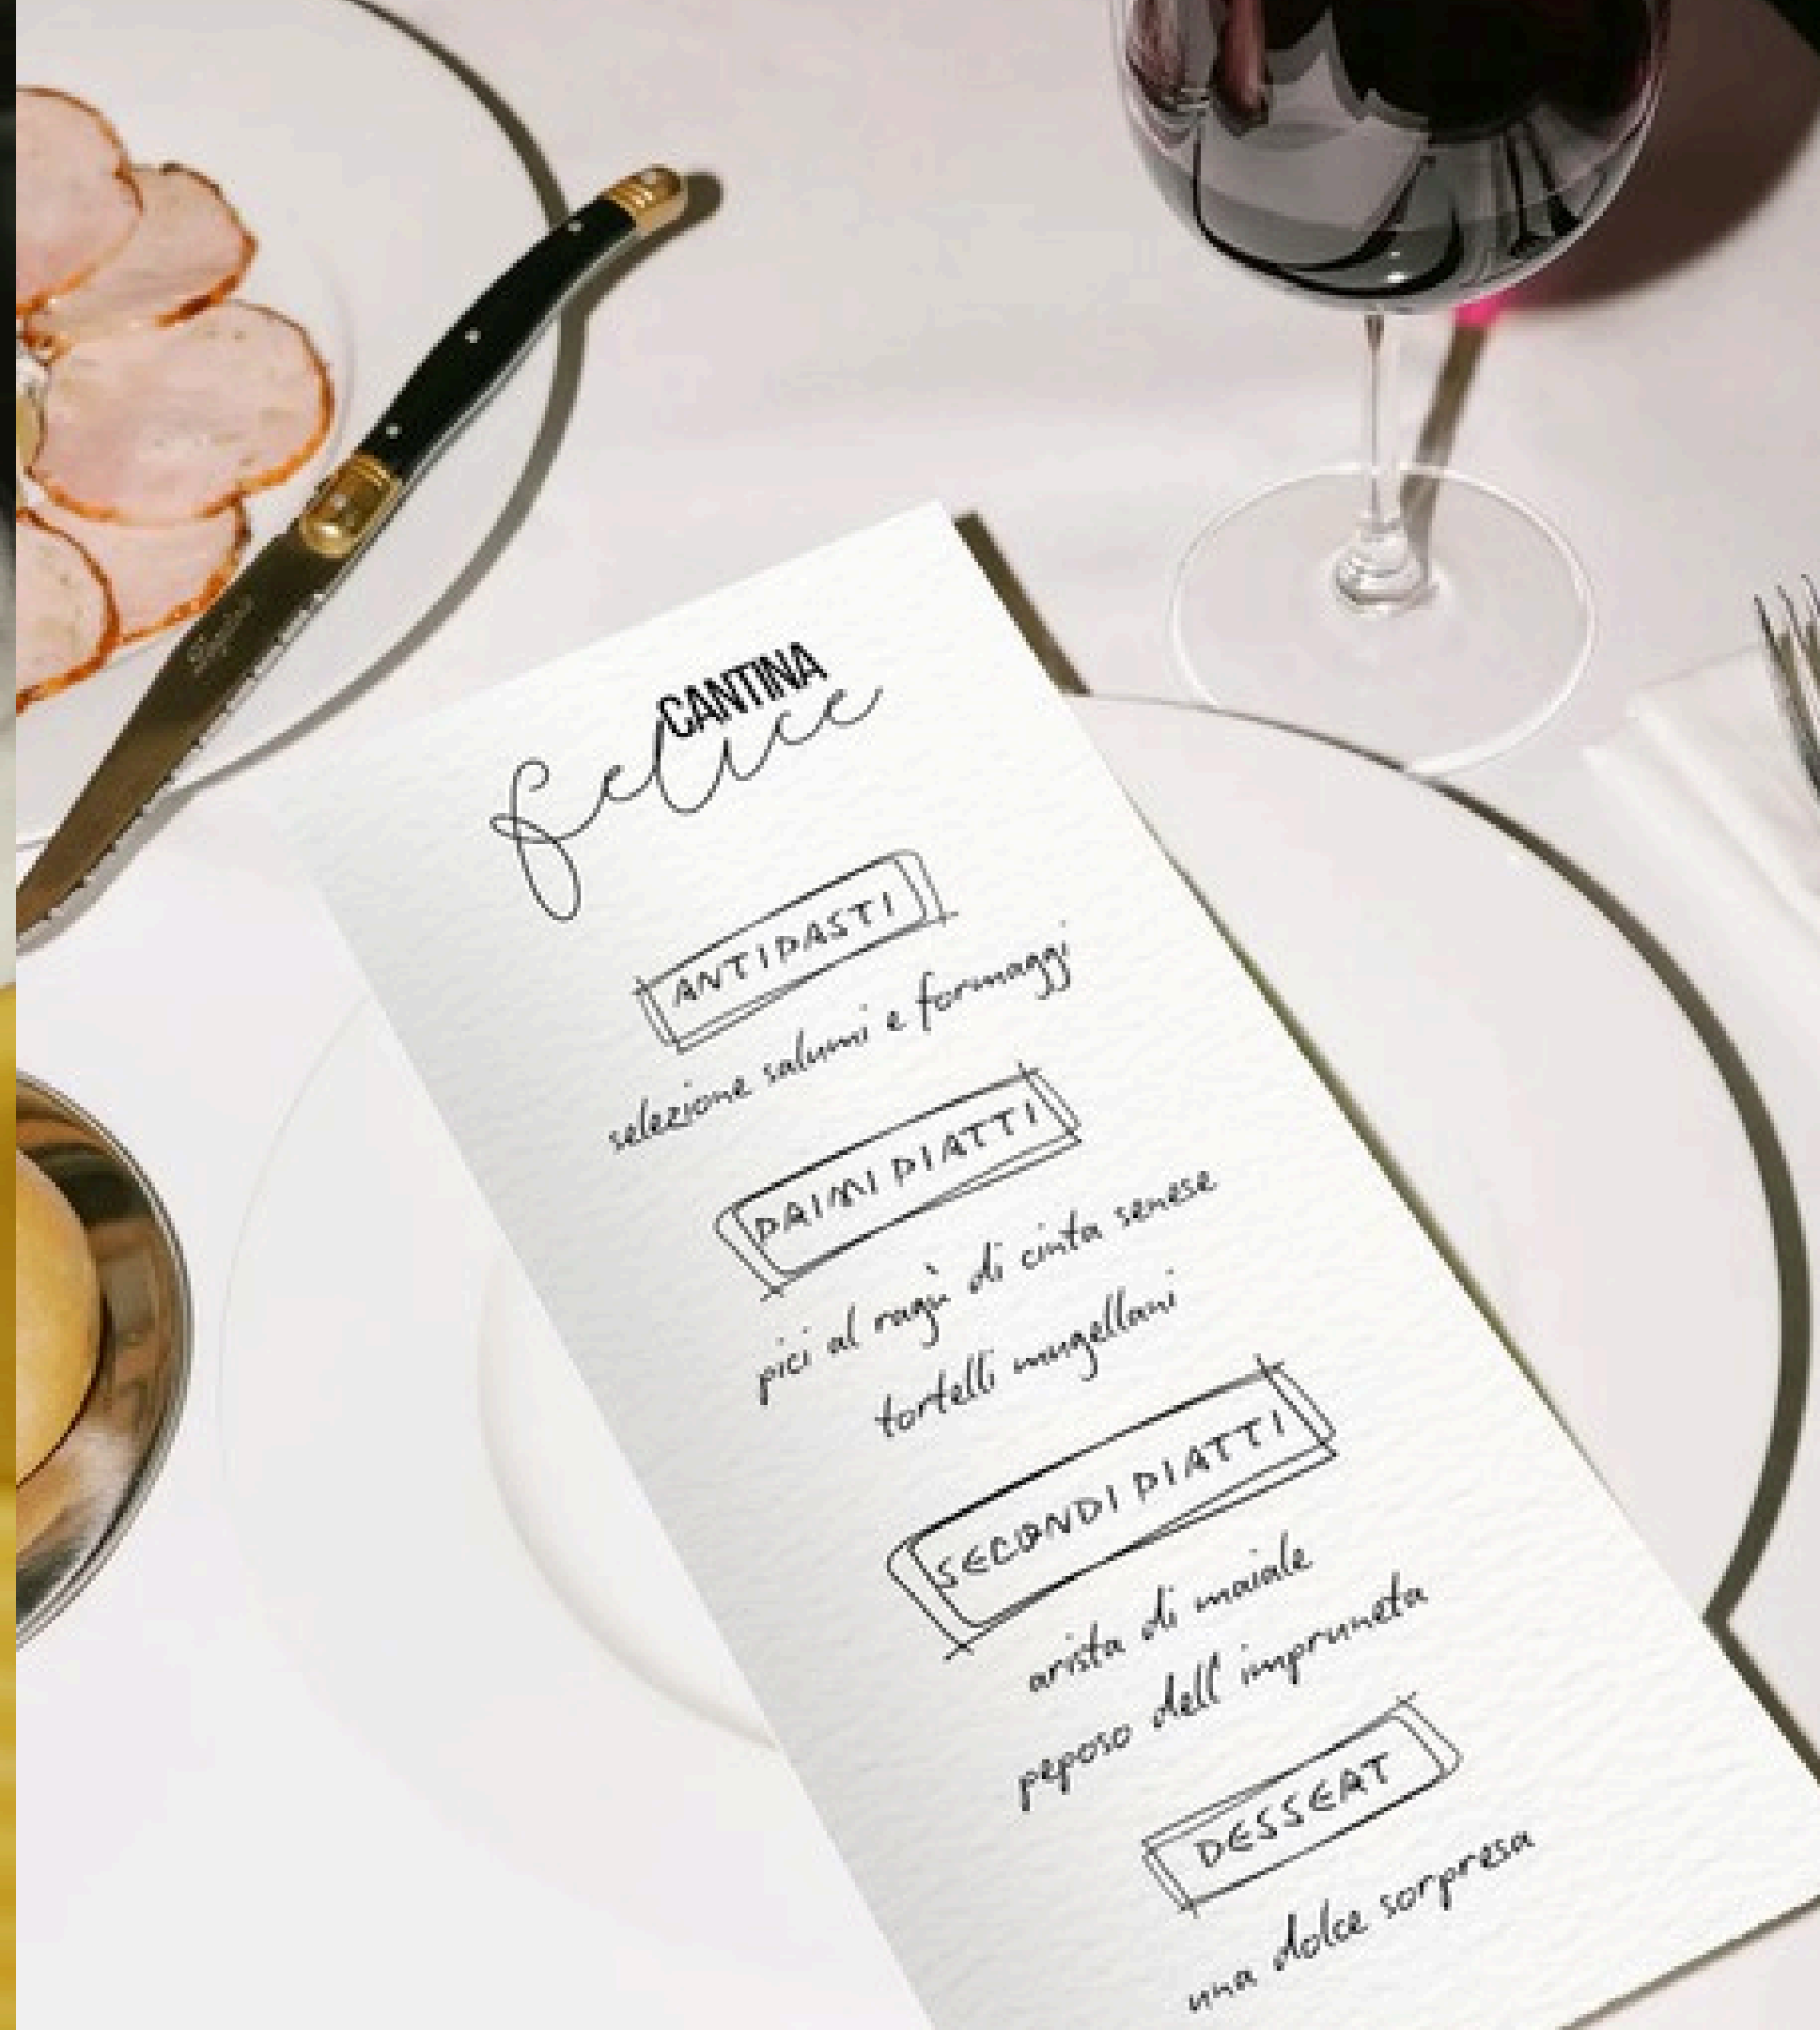 CANTINA
felice
ANTIPASTI
selezione salumi e formaggi
PRIMI PIATTI
pici al ragù di cinta senese
tortelli mugellani
SECONDI PIATTI
arista di maiale
peposo dell'impruneta
DESSERT
una dolce sorpresa